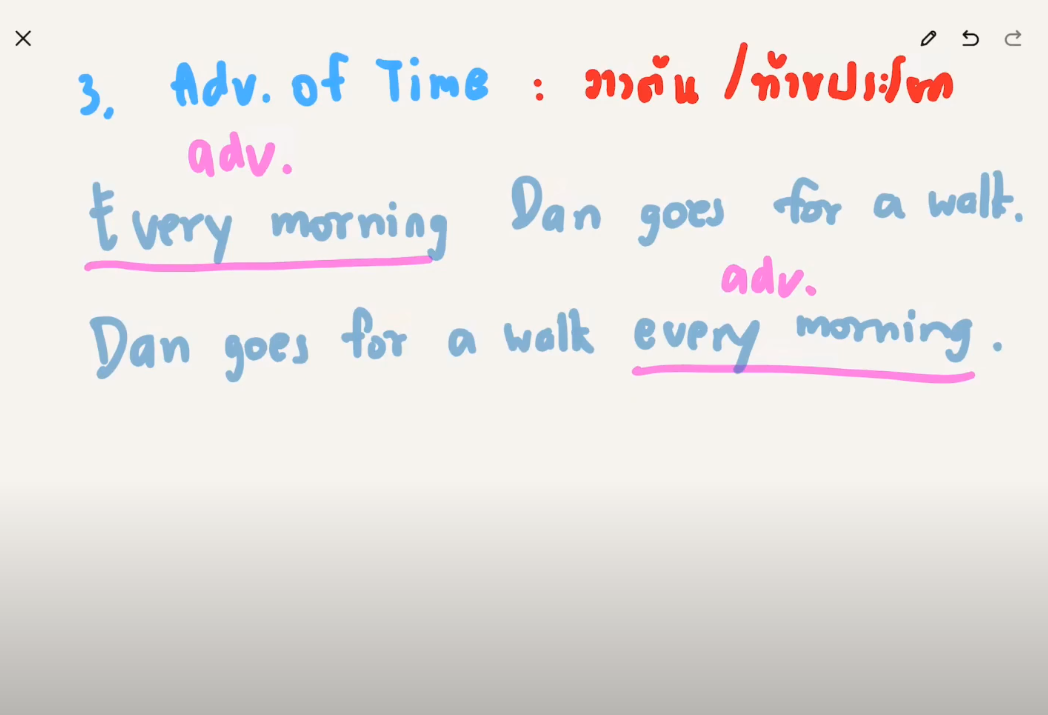 3. Adv. of Time : วางต้น / ท้ายประโยค
adv.
Every morning Dan goes for a walk.
adv.
Dan goes for a walk every morning.